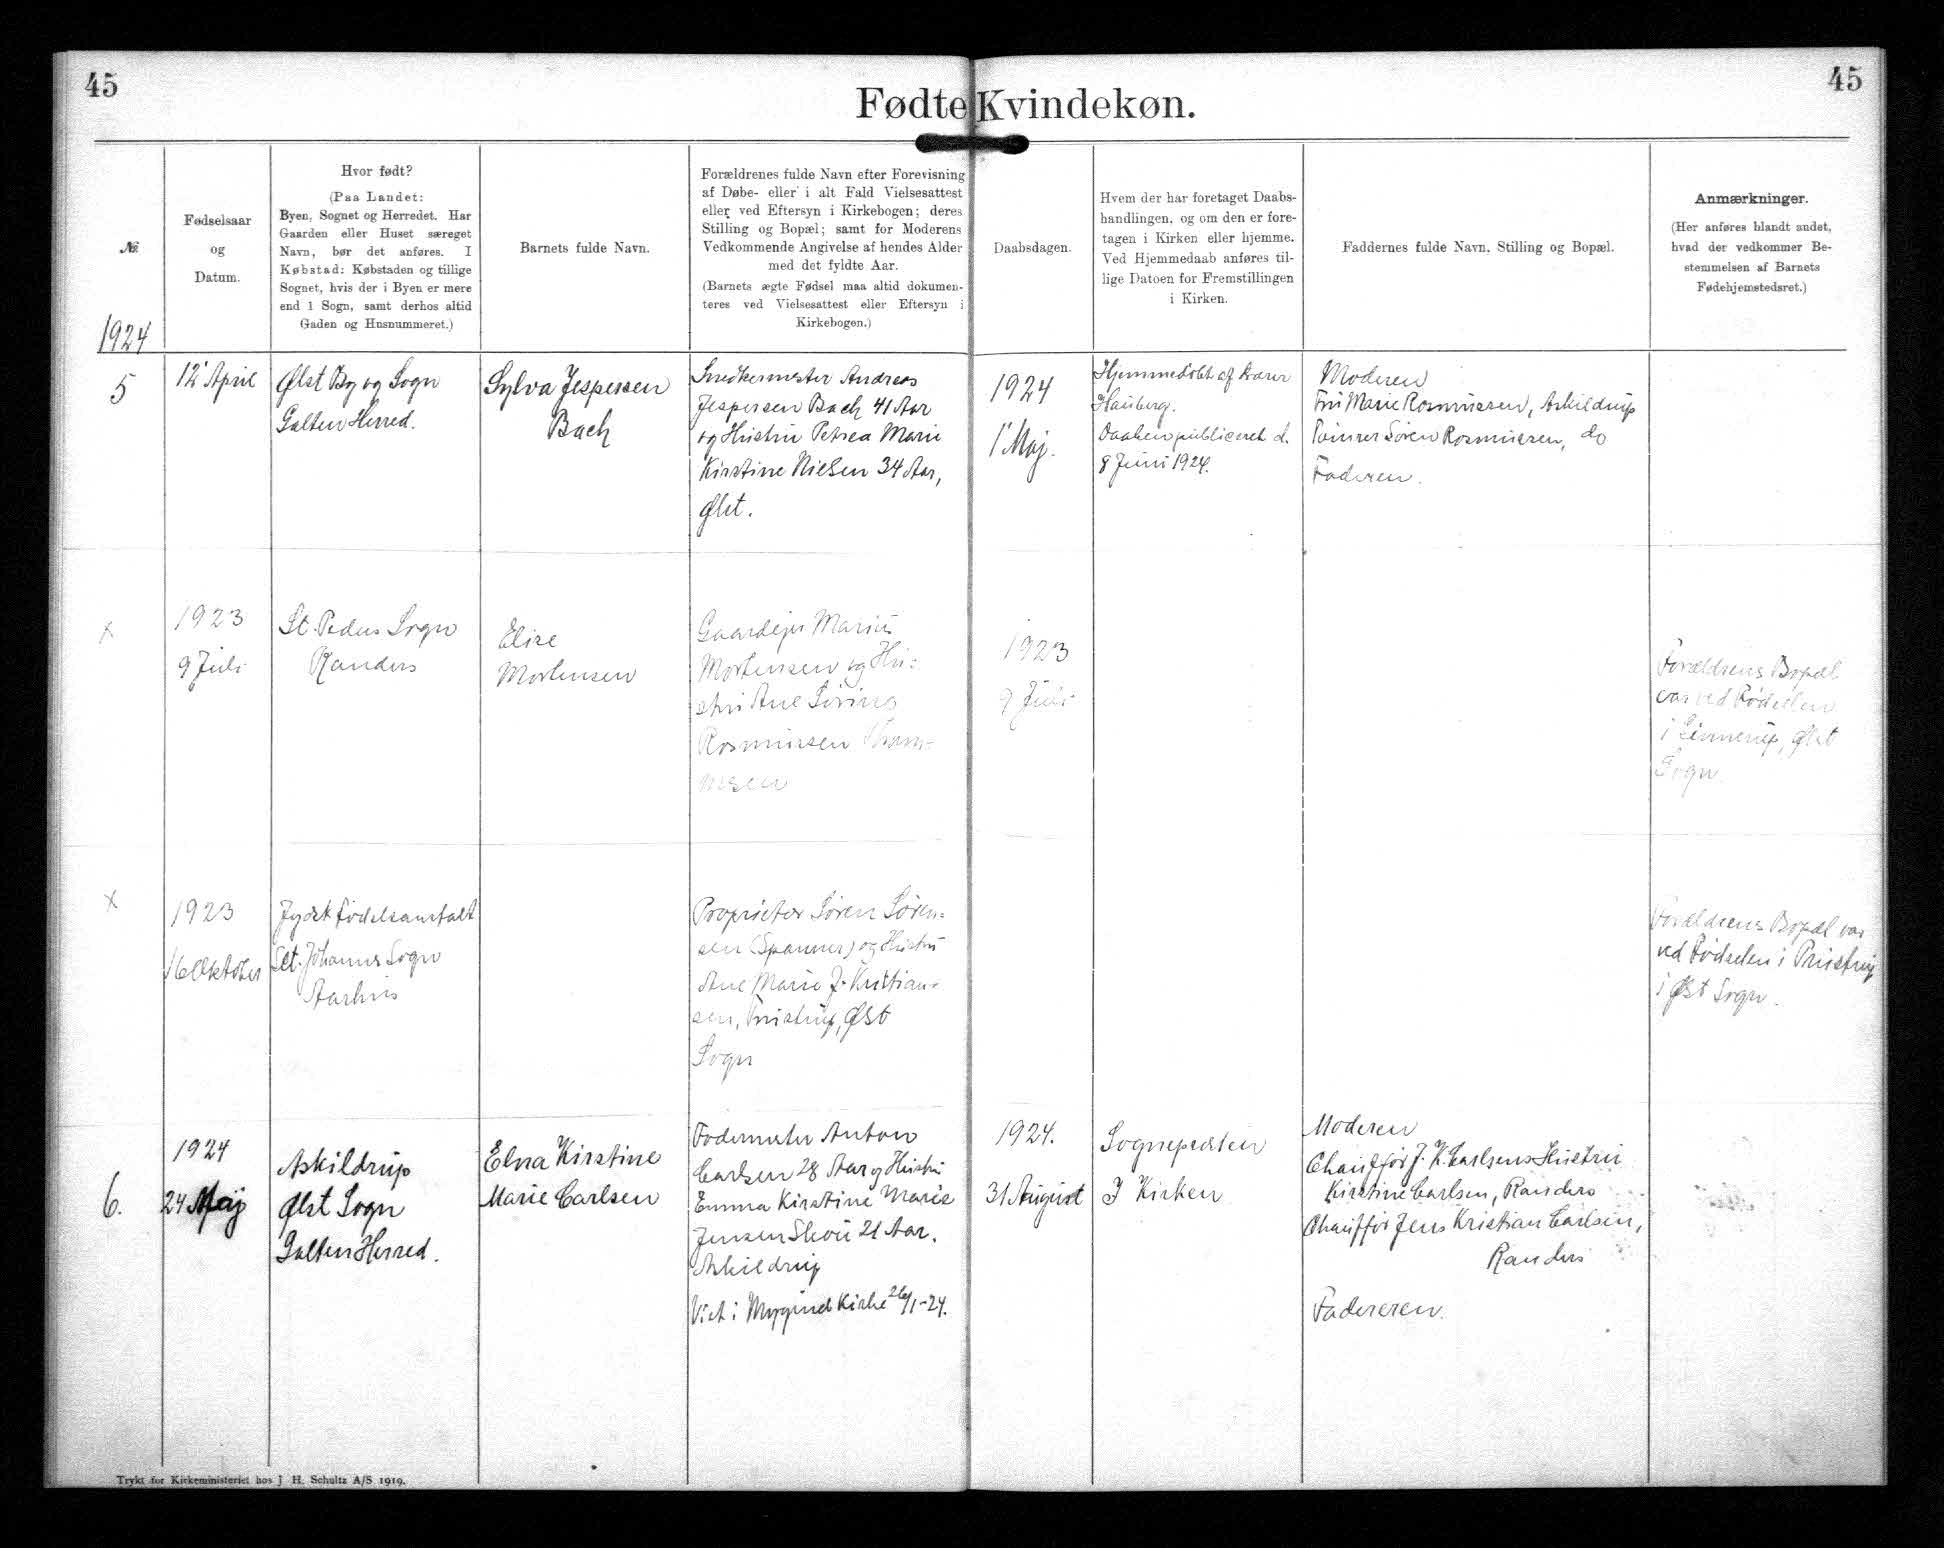 45
45
Fødte Kvindekøn.
№
Fødselsaar
og
Datum.
Hvor født?
(Paa Landet:
Byen, Sognet og Herredet. Har
Gaarden eller Huset særeget
Navn, bør det anføres. I
Købstad: Købstaden og tillige
Sognet, hvis der i Byen er mere
end 1 Sogn, samt derhos altid
Gaden og Husnummeret.)
Barnets fulde Navn.
Forældrenes fulde Navn efter Forevisning
af Døbe- eller i alt Fald Vielsesattest
eller ved Eftersyn i Kirkebogen; deres
Stilling og Bopæl; samt for Moderens
Vedkommende Angivelse af hendes Alder
med det fyldte Aar.
(Barnets ægte Fødsel maa altid dokumen-
teres ved Vielsesattest eller Eftersyn i
Kirkebogen.)
Daabsdagen.
Hvem der har foretaget Daabs-
handlingen, og om den er fore-
tagen i Kirken eller hjemme.
Ved Hjemmedaab anføres til-
lige Datoen for Fremstillingen
i Kirken.
Faddernes fulde Navn, Stilling og Bopæl.
Anmærkninger.
(Her anføres blandt andet,
hvad der vedkommer Be-
stemmelsen af Barnets
Fødehjemstedsret.)
1924
5
12' April
Ølst By og Sogn
Galten Herred.
Sylva Jespersen
Bach
Snedkermester Andreas
Jespersen Bach 41 Aar
og Hustru Petrea Marie
Kirstine Nielsen 34 Aar,
Ølst.
1924
1' Maj.
Hjemmedøbt af Lærer
Hauberg.
Daaben publiceret d.
8 Juni 1924.
Moderen
Fru Marie Rasmussen, Askildrup
Tømrer Søren Rasmussen, do
Faderen.
x
1923
9 Juli
St. Peders Sogn
Randers
Elise
Mortensen
Gaardejer Marius
Mortensen og Hu=
stru Ane Sørine
Rasmussen
1923
9 Juli
Forældrenes Bopæl
var ved Fødselen
i Linnerup, Ølst
Sogn.
x
1923
16 Oktober
Jydsk Fødselsanstalt
Sct. Johannes Sogn
Aarhus
Proprietær Søren Søren=
sen (Spanner) og Hustru
Ane Marie J. Kristian=
sen, Tristrup, Ølst
Sogn
Forældrenes Bopæl var
ved Fødselen i Tristrup
i Ølst Sogn.
6.
1924
24 Maj
Askildrup
Ølst Sogn
Galten Herred.
Elna Kirstine
Marie Carlsen
Fodermester Anton
Carlsen 28 Aar og Hustru
Emma Kirstine Marie
Jensen Skou 21 Aar.
Askildrup
Viet i Mygind Kirke 26/1-24.
1924.
31 August
Sognepræsten
I Kirken
Moderen
Chauffør J. K. Carlsens Hustru
Kirstine Carlsen, Randers
Chauffør Jens Kristian Carlsen,
Randers
Faderen.
Trykt for Kirkeministeriet hos J. H. Schultz A/S 1919.